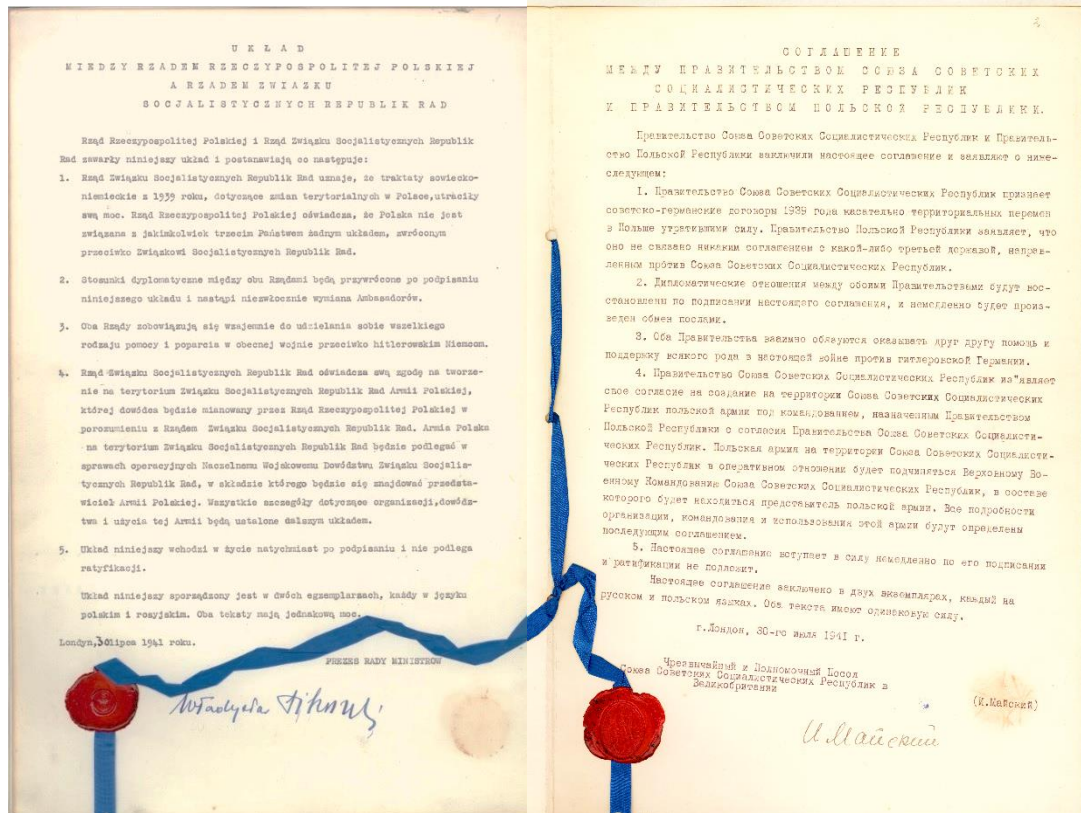 UKŁAD
MIĘDZY RZĄDEM RZECZYPOSPOLITEJ POLSKIEJ
A RZĄDEM ZWIĄZKU
SOCJALISTYCZNYCH REPUBLIK RAD
Rząd Rzeczypospolitej Polskiej i Rząd Związku Socjalistycznych Republik
Rad zawarły niniejszy układ i postanawiają co następuje:
1. Rząd Związku Socjalistycznych Republik Rad uznaje, że traktaty sowiecko-
niemieckie z 1939 roku, dotyczące zmian terytorialnych w Polsce,utraciły
swą moc. Rząd Rzeczypospolitej Polskiej oświadcza, że Polska nie jest
związana z jakimkolwiek trzecim Państwem żadnym układem, zwróconym
przeciwko Związkowi Socjalistycznych Republik Rad.
2. Stosunki dyplomatyczne między obu Rządami będą przywrócone po podpisaniu
niniejszego układu i nastąpi niezwłocznie wymiana Ambasadorów.
3. Oba Rządy zobowiązują się wzajemnie do udzielania sobie wszelkiego
rodzaju pomocy i poparcia w obecnej wojnie przeciwko hitlerowskim Niemcom.
4. Rząd Związku Socjalistycznych Republik Rad oświadcza swą zgodę na tworze-
nie na terytorium Związku Socjalistycznych Republik Rad Armii Polskiej,
której dowódca będzie mianowany przez Rząd Rzeczypospolitej Polskiej w
porozumieniu z Rządem Związku Socjalistycznych Republik Rad. Armia Polska
na terytorium Związku Socjalistycznych Republik Rad będzie podlegać w
sprawach operacyjnych Naczelnemu Wojskowemu Dowództwu Związku Socjalis-
tycznych Republik Rad, w składzie którego będzie się znajdować przedsta-
wiciel Armii Polskiej. Wszystkie szczegóły dotyczące organizacji,dowódz-
twa i użycia tej Armii będą ustalone dalszym układem.
5. Układ niniejszy wchodzi w życie natychmiast po podpisaniu i nie podlega
ratyfikacji.
Układ niniejszy sporządzony jest w dwóch egzemplarzach, każdy w języku
polskim i rosyjskim. Oba teksty mają jednakową moc.
Londyn,30lipca 1941 roku.
PREZES RADY MINISTRÓW
Władysław Sikorski
3
СОГЛАШЕНИЕ
МЕЖДУ ПРАВИТЕЛЬСТВОМ СОЮЗА СОВЕТСКИХ
СОЦИАЛИСТИЧЕСКИХ РЕСПУБЛИК
И ПРАВИТЕЛЬСТВОМ ПОЛЬСКОЙ РЕСПУБЛИКИ.
Правительство Союза Советских Социалистических Республик и Правитель-
ство Польской Республики заключили настоящее соглашение и заявляют о ниже-
следующем:
I. Правительство Союза Советских Социалистических Республик признает
советско-германские договоры 1939 года касательно территориальных перемен
в Польше утратившими силу. Правительство Польской Республики заявляет, что
оно не связано никаким соглашением с какой-либо третьей державой, направ-
ленным против Союза Советских Социалистических Республик.
2. Дипломатические отношения между обоими Правительствами будут вос-
становлены по подписании настоящего соглашения, и немедленно будет произ-
веден обмен послами.
3. Оба Правительства взаимно обязуются оказывать друг другу помощь и
поддержку всякого рода в настоящей войне против гитлеровской Германии.
4. Правительство Союза Советских Социалистических Республик из"являет
свое согласие на создание на территории Союза Советских Социалистических
Республик польской армии под командованием, назначенным Правительством
Польской Республики с согласия Правительства Союза Советских Социалисти-
ческих Республик. Польская армия на территории Союза Советских Социалисти-
ческих Республик в оперативном отношении будет подчиняться Верховному Во-
енному Командованию Союза Советских Социалистических Республик, в составе
которого будет находиться представитель польской армии. Все подробности
организации, командования и использования этой армии будут определены
последующим соглашением.
5. Настоящее соглашение вступает в силу немедленно по его подписании
и ратификации не подлежит.
Настоящее соглашение заключено в двух экземплярах, каждый на
русском и польском языках. Оба текста имеют одинаковую силу.
г.Лондон, 30-го июля 1941 г.
Чрезвычайный и Полномочный Посол
Союза Советских Социалистических Республик в
Великобритании
(И.Майский)
И Майский